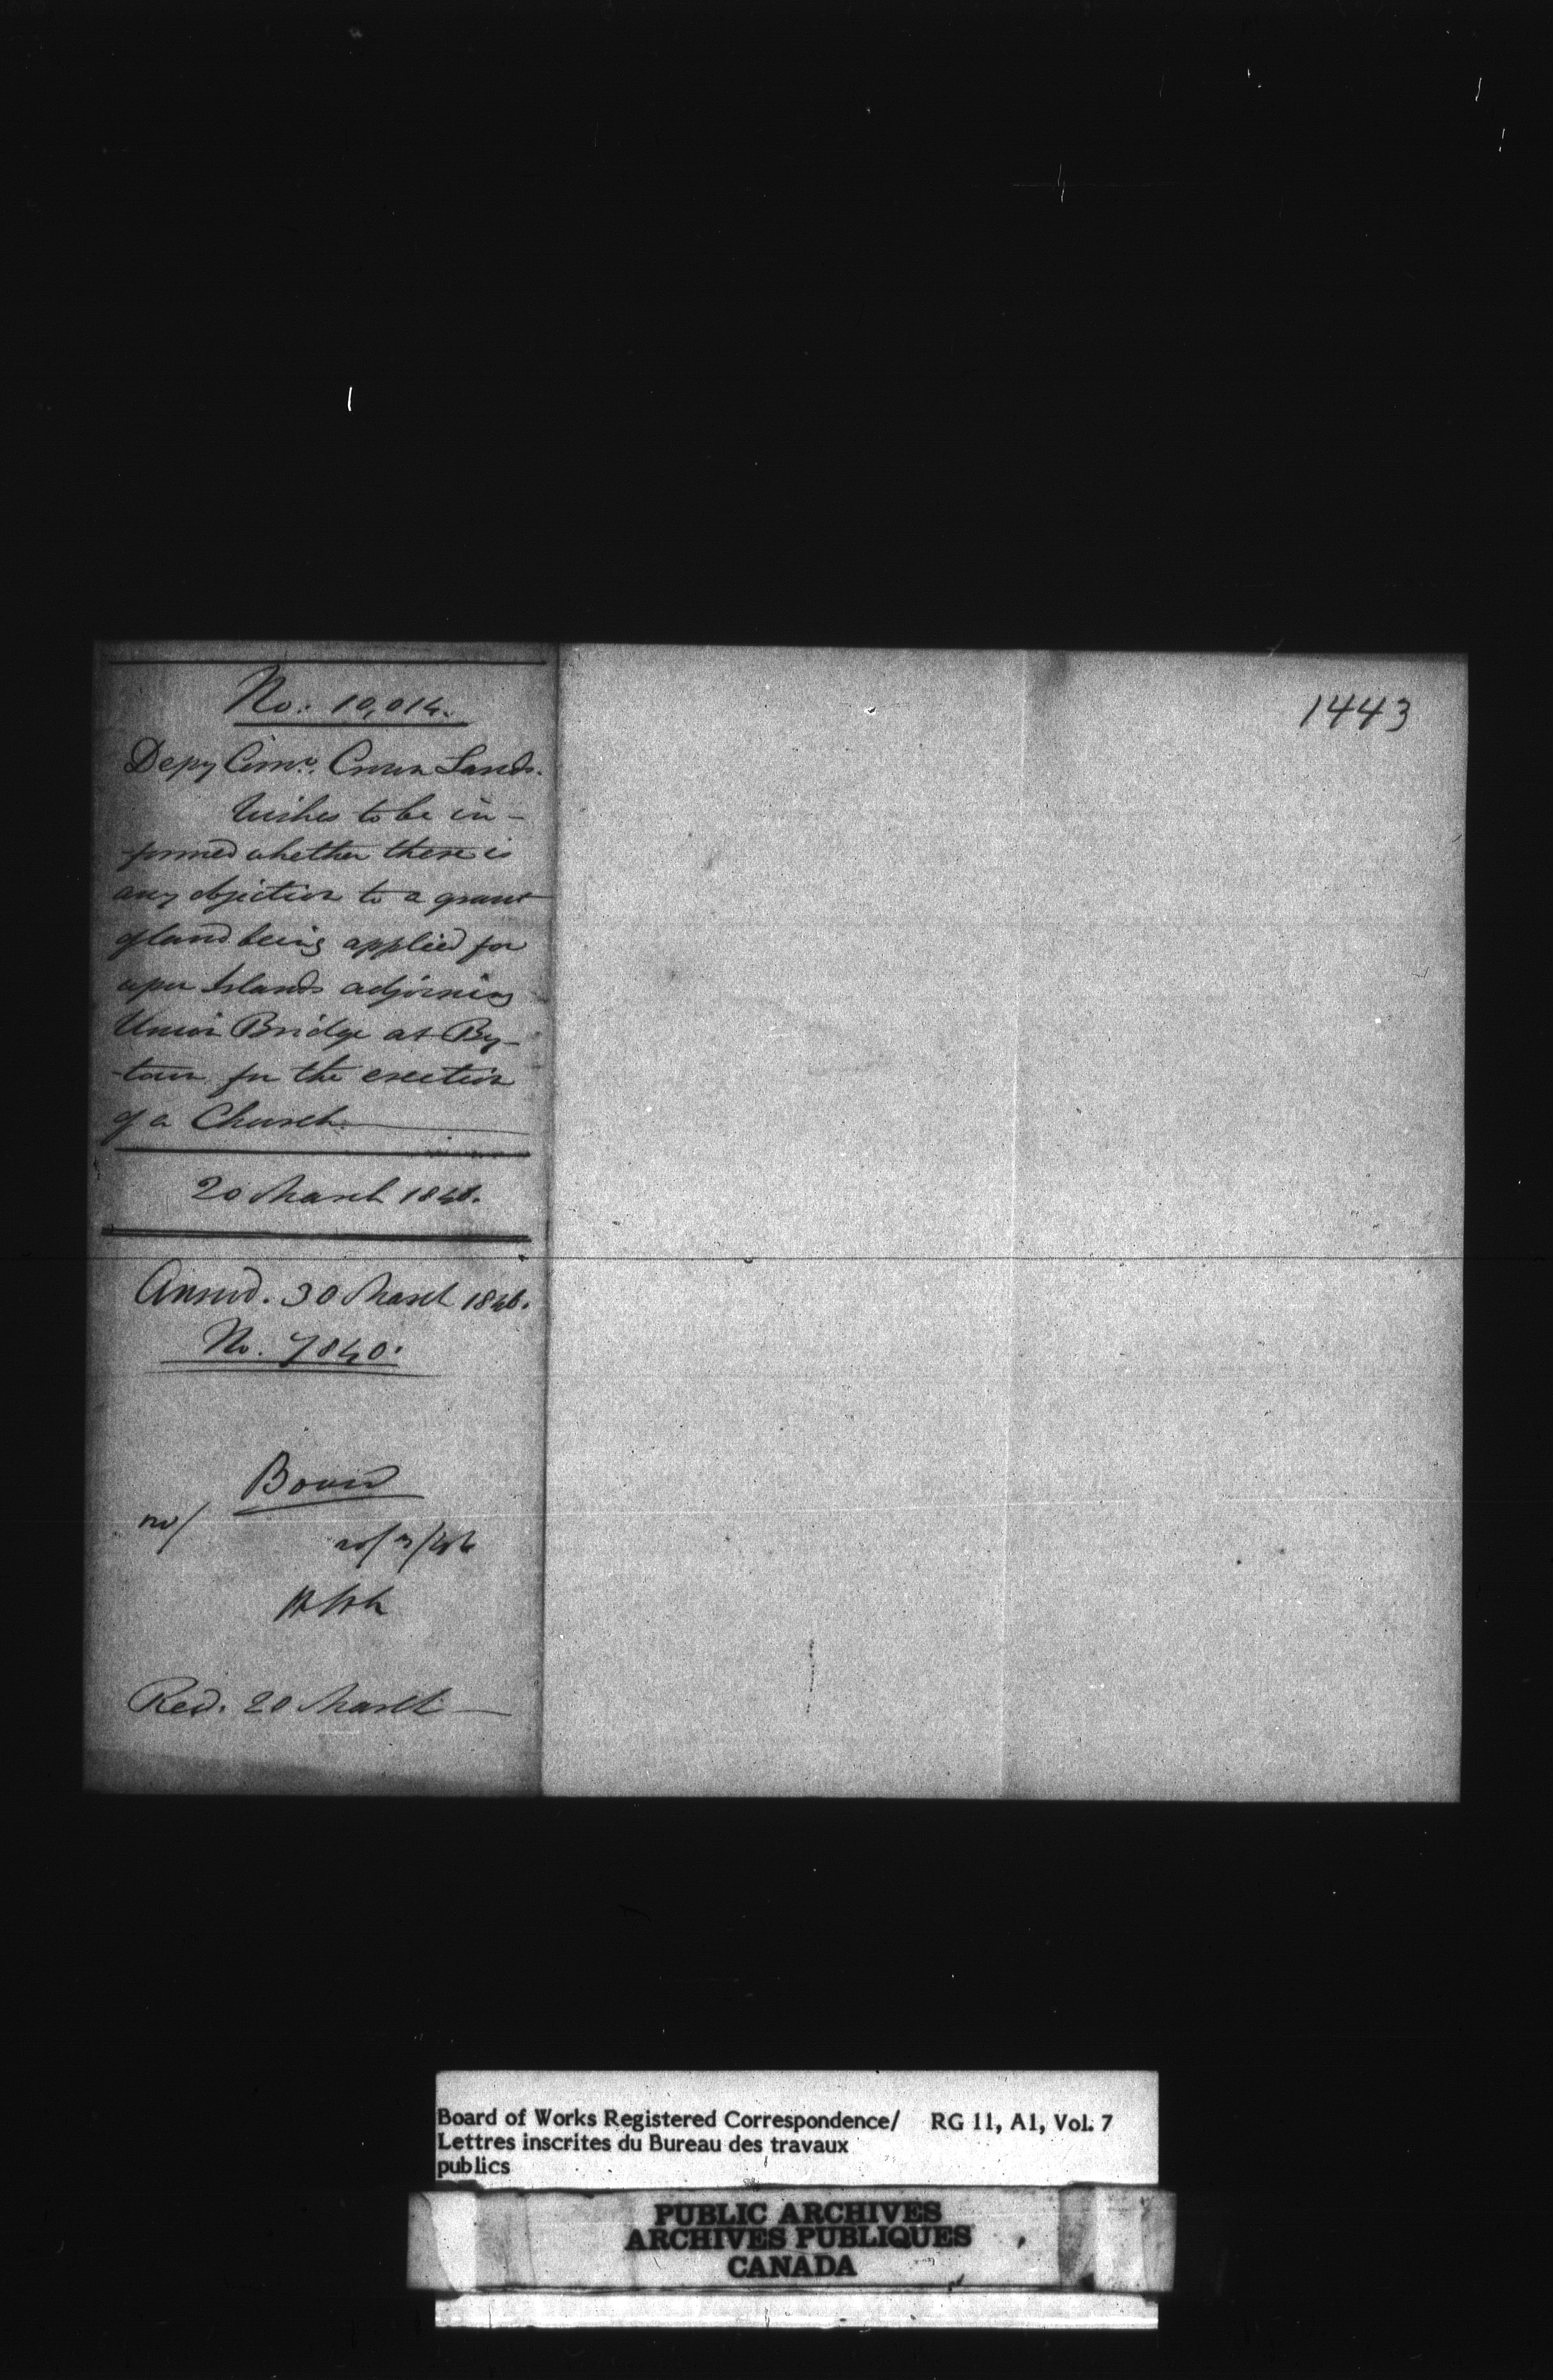 No. 10,014.
Depy Comr. Crown Lands.
Wishes to be in-
-formed whether there is
any objection to a grant
of land being applied for
upon Islands adjoining
Union Bridge at By-
-town for the erection
of a Church.
20 March 1846.
Answd. 30 March 1846.
No. 7840.
Board
Recd. 20 March
1443
Board of Works Registered Correspondence/ RG 11, A1, Vol. 7
Lettres inscrites du Bureau des travaux
publics
PUBLIC ARCHIVES
ARCHIVES PUBLIQUES
CANADA